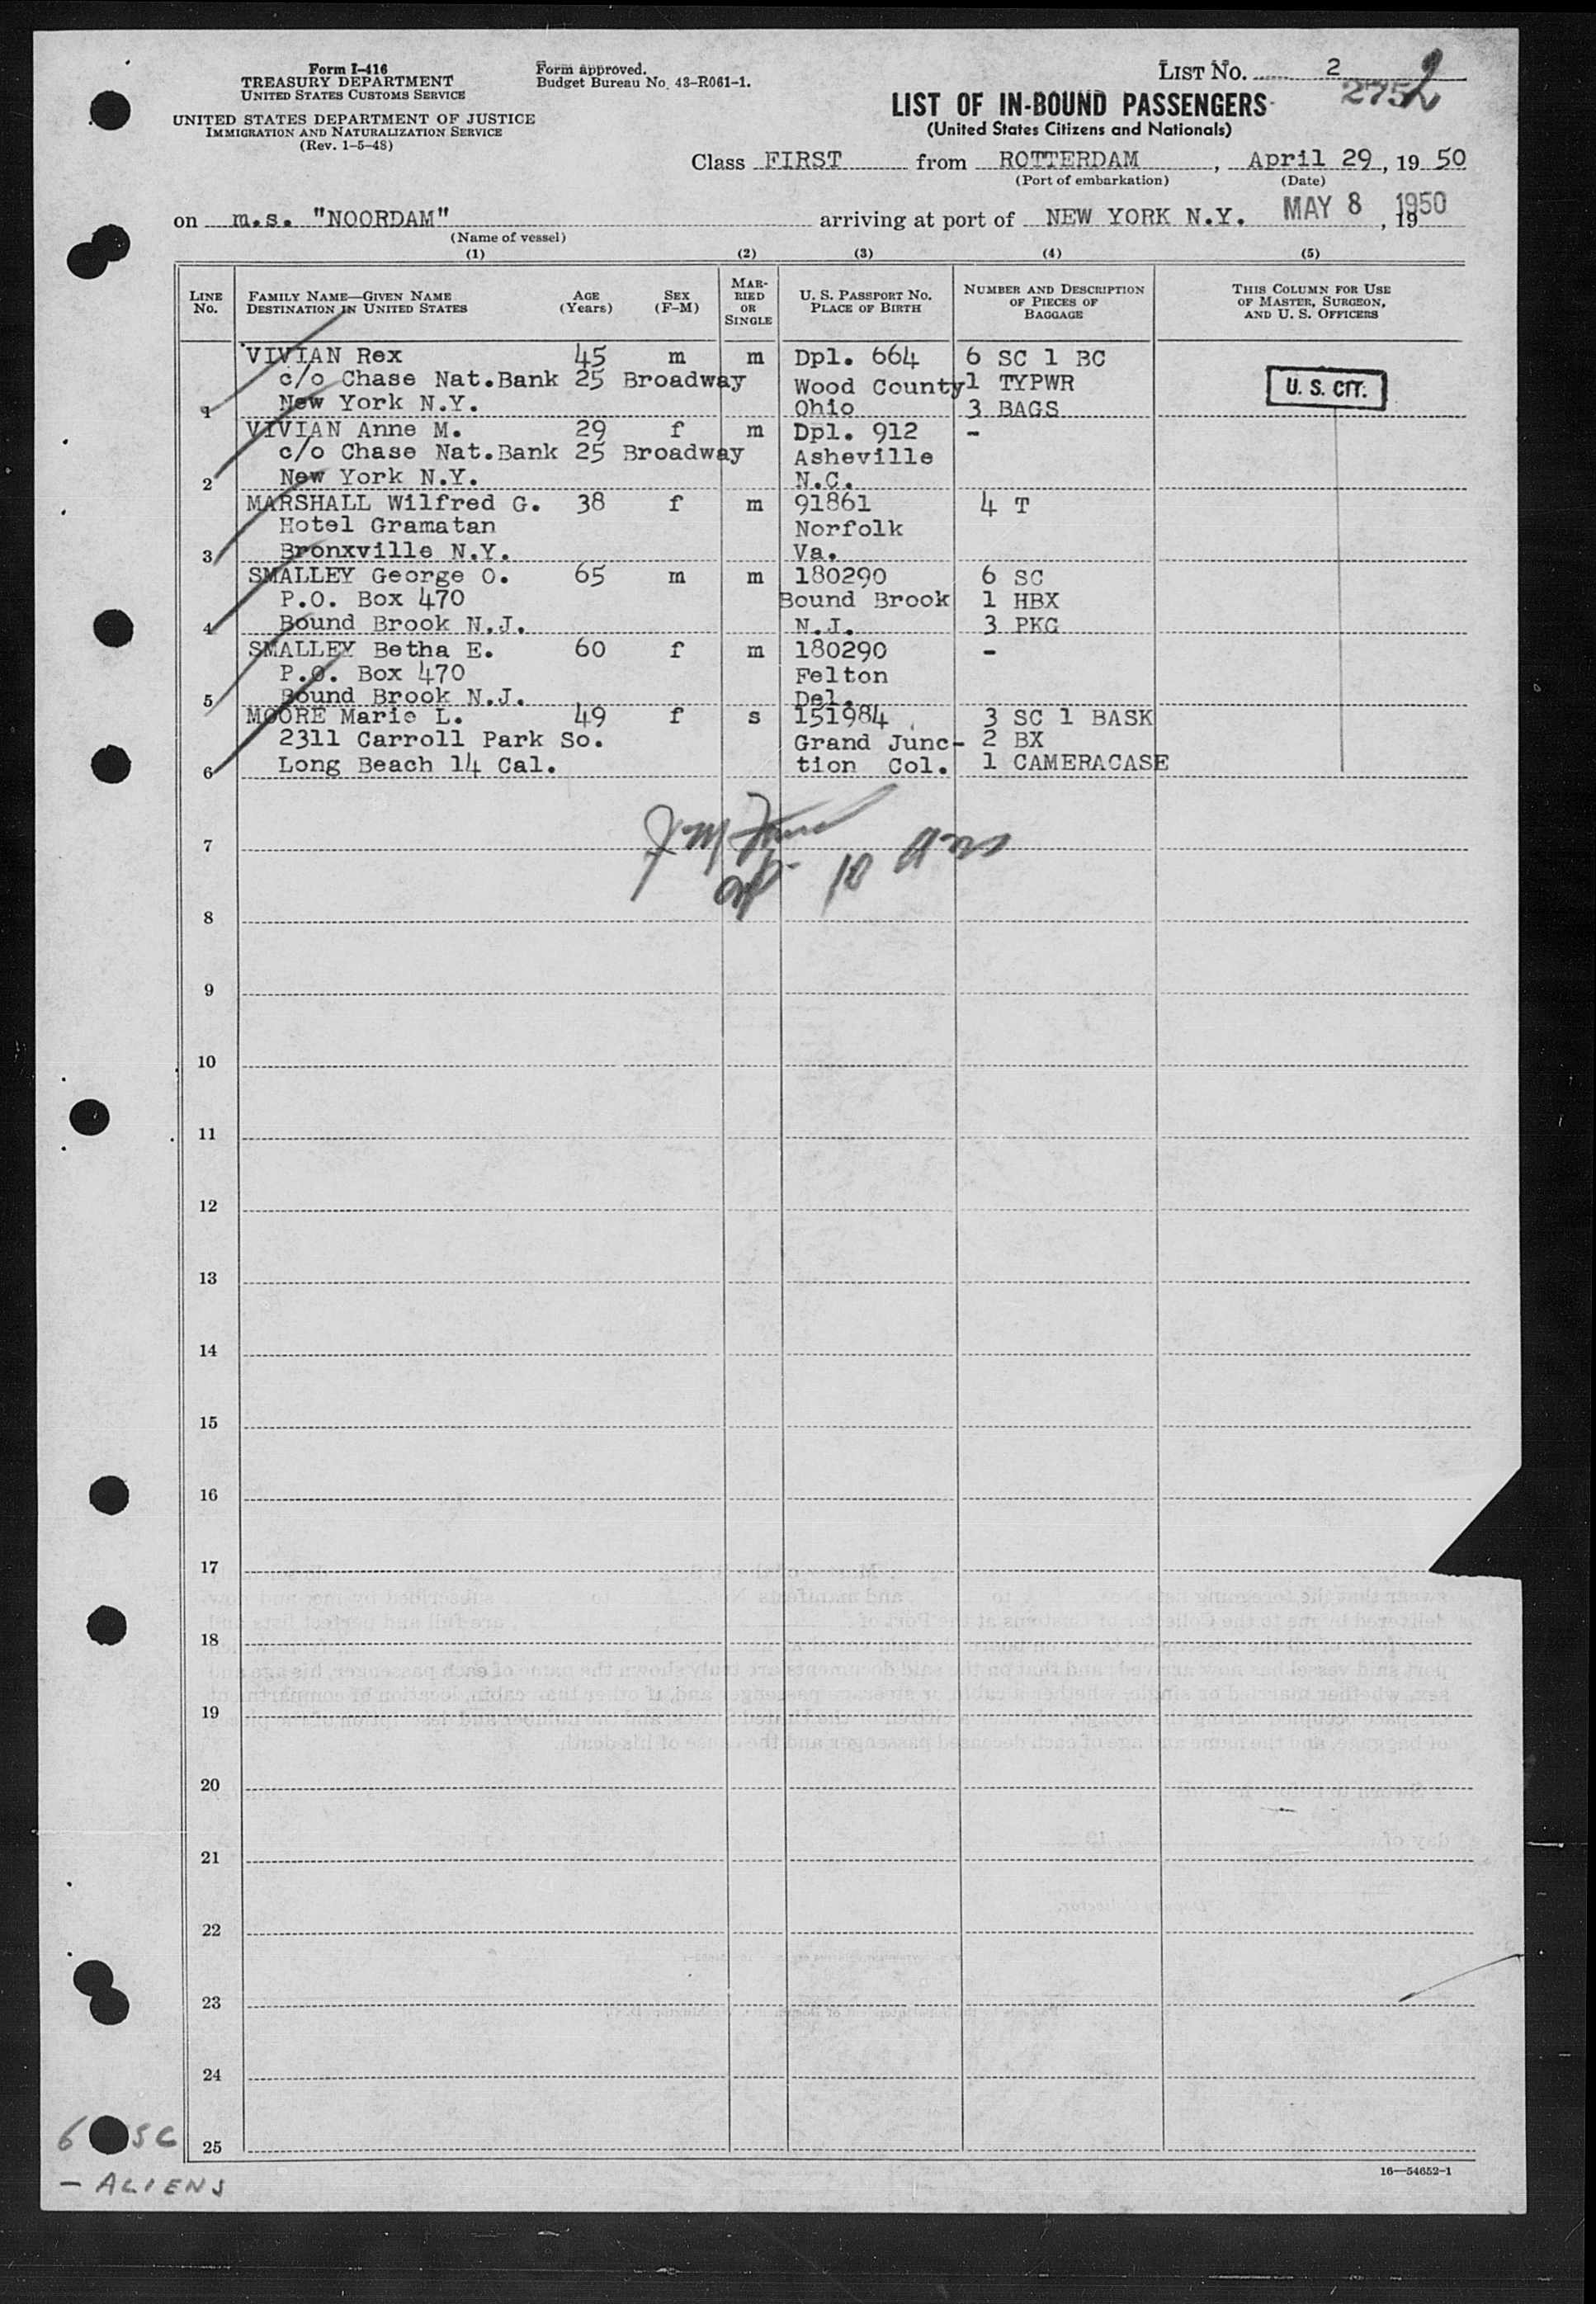 Form I-416
TREASURY DEPARTMENT
UNITED STATES CUSTOMS SERVICE
UNITED STATES DEPARTMENT OF JUSTICE
IMMIGRATION AND NATURALIZATION SERVICE
(Rev. 1-5-48)
Form approved.
Budget Bureau No. 43-R061-1.
LIST NO. 2
2752
LIST OF IN-BOUND PASSENGERS
(United States Citizens and Nationals)
Class FIRST from ROTTERDAM, April 29, 19 50
(Port of embarkation) (Date)
on m.s. "NOORDAM" arriving at port of NEW YORK N.Y. MAY 8 1950, 19
(Name of vessel)
(1) (2) (3) (4) (5)
LINE No.
FAMILY NAME—GIVEN NAME
DESTINATION IN UNITED STATES
AGE (Years)
SEX (F-M)
MARRIED OR SINGLE
U. S. PASSPORT NO.
PLACE OF BIRTH
NUMBER AND DESCRIPTION OF PIECES OF BAGGAGE
THIS COLUMN FOR USE OF MASTER, SURGEON, AND U. S. OFFICERS
VIVIAN Rex 45 m m Dpl. 664 6 SC 1 BC
c/o Chase Nat.Bank 25 Broadway Wood County 1 TYPWR U. S. CIT.
1 New York N.Y. Ohio 3 BAGS
VIVIAN Anne M. 29 f m Dpl. 912 -
c/o Chase Nat.Bank 25 Broadway Asheville
2 New York N.Y. N.C.
MARSHALL Wilfred G. 38 f m 91861 4 T
Hotel Gramatan Norfolk
3 Bronxville N.Y. Va.
SMALLEY George O. 65 m m 180290 6 SC
P.O. Box 470 Bound Brook 1 HBX
4 Bound Brook N.J. N.J. 3 PKG
SMALLEY Betha E. 60 f m 180290 -
P.O. Box 470 Felton
5 Bound Brook N.J. Del.
MOORE Marie L. 49 f s 151984 3 SC 1 BASK
2311 Carroll Park So. Grand Junc- 2 BX
6 Long Beach 14 Cal. tion Col. 1 CAMERACASE
7
8
9
10
11
12
13
14
15
16
17
18
19
20
21
22
23
24
25
6 SC
- ALIENS
16—54652-1